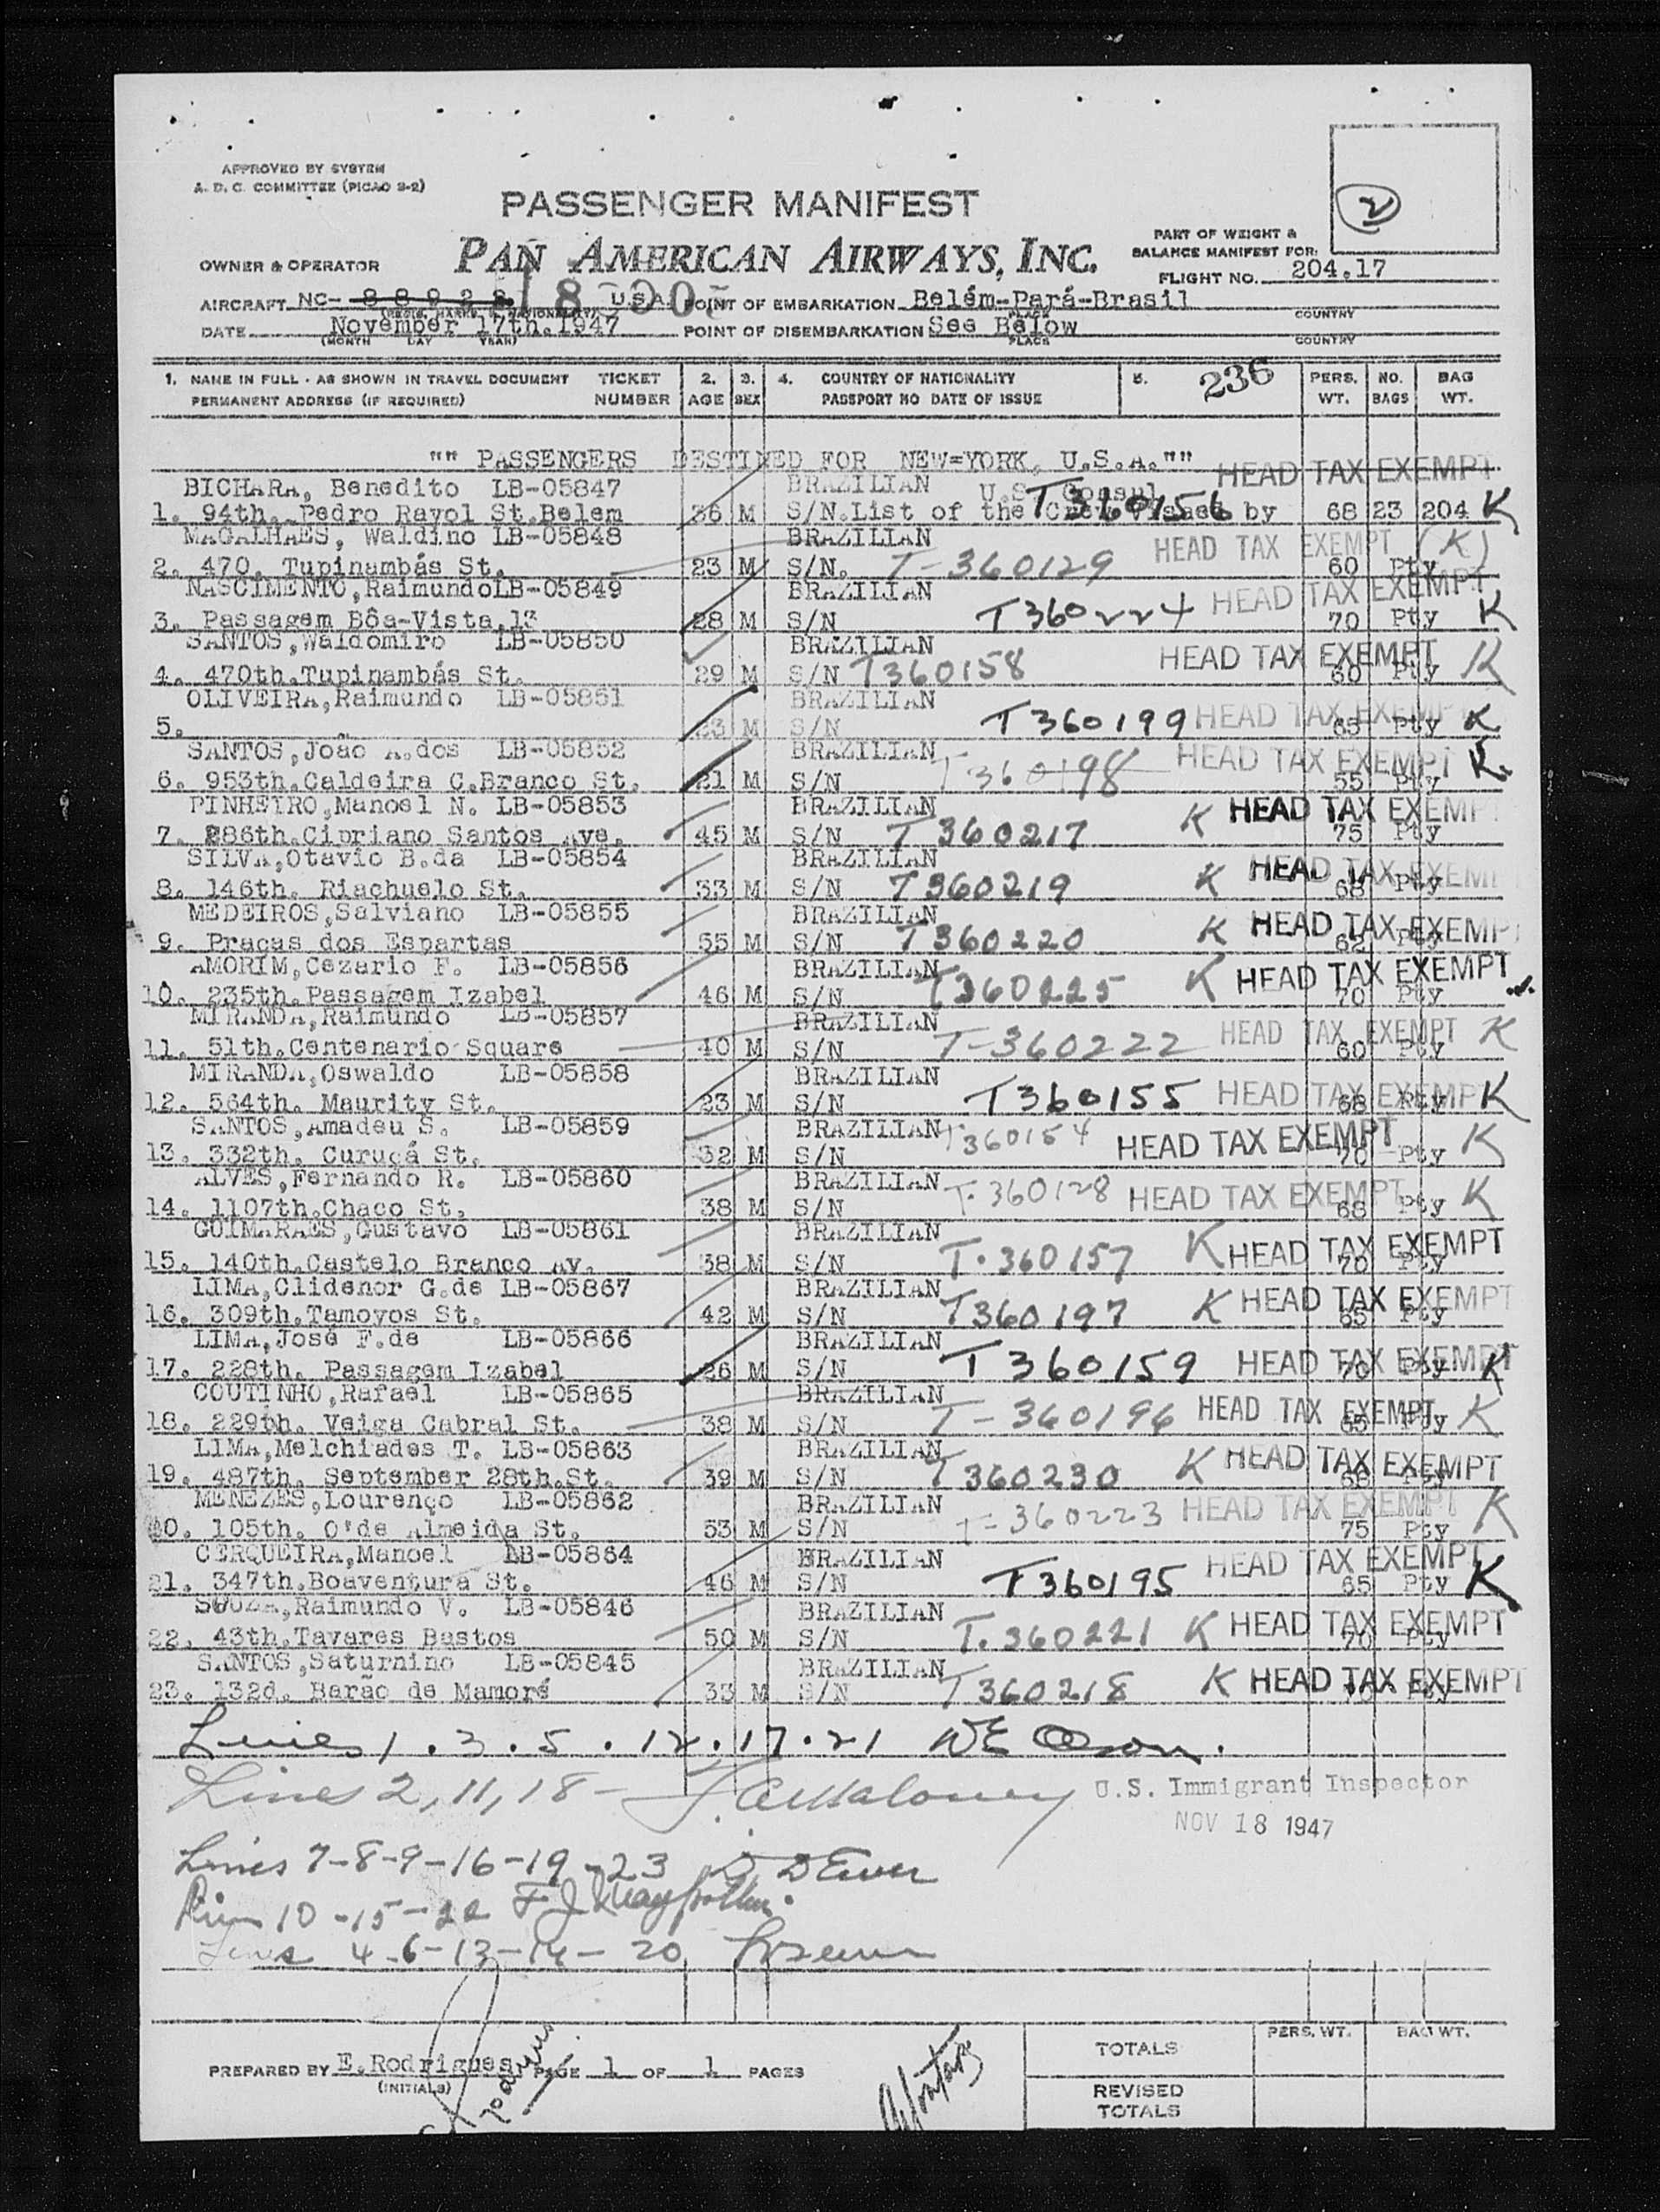 APPROVED BY SYSTEM
A. D. C. COMMITTEE (PICAO S-2)
PASSENGER MANIFEST
2
OWNER & OPERATOR PAN AMERICAN AIRWAYS, INC.
PART OF WEIGHT &
BALANCE MANIFEST FOR:
FLIGHT NO. 204.17
AIRCRAFT NC- 88923 U.S.A. POINT OF EMBARKATION Belém-Pará-Brasil
(REGIS. MARKS & NATIONALITY) PLACE COUNTRY
DATE November 17th.1947 POINT OF DISEMBARKATION See Below
(MONTH DAY YEAR) PLACE COUNTRY
1. NAME IN FULL - AS SHOWN IN TRAVEL DOCUMENT TICKET 2. 3. 4. COUNTRY OF NATIONALITY 5. 236 PERS. NO. BAG
PERMANENT ADDRESS (IF REQUIRED) NUMBER AGE SEX PASSPORT NO DATE OF ISSUE WT. BAGS WT.
"" PASSENGERS DESTINED FOR NEW=YORK, U.S.A."" HEAD TAX EXEMPT
BICHARA, Benedito LB-05847 BRAZILIAN U.S. Consul
1. 94th. Pedro Rayol St.Belem 36 M S/N.List of the Crew Visaed by T360156 68 23 204 K
MAGALHAES, Waldino LB-05848 BRAZILIAN HEAD TAX EXEMPT (K)
2. 470. Tupinambás St. 23 M S/N. T-360129 60 Pty
NASCIMENTO,Raimundo LB-05849 BRAZILIAN HEAD TAX EXEMPT
3. Passagem Bôa-Vista,13 28 M S/N T360224 70 Pty K
SANTOS,Waldomiro LB-05850 BRAZILIAN HEAD TAX EXEMPT
4. 470th.Tupinambás St. 29 M S/N T360158 60 Pty K
OLIVEIRA,Raimundo LB-05851 BRAZILIAN
5. 23 M S/N T360199 HEAD TAX EXEMPT 65 Pty K
SANTOS,João A.dos LB-05852 BRAZILIAN HEAD TAX EXEMPT K.
6. 953th.Caldeira C.Branco St. 21 M S/N T360198 55 Pty
PINHEIRO,Manoel N. LB-05853 BRAZILIAN K HEAD TAX EXEMPT
7. 286th.Cipriano Santos Ave. 45 M S/N T360217 75 Pty
SILVA,Otavio B.da LB-05854 BRAZILIAN HEAD TAX EXEMPT
8. 146th. Riachuelo St. 33 M S/N T360219 K 68 Pty
MEDEIROS,Salviano LB-05855 BRAZILIAN HEAD TAX EXEMPT
9. Praças dos Espartas 55 M S/N T360220 K 62 Pty
AMORIM,Cezario F. LB-05856 BRAZILIAN HEAD TAX EXEMPT
10. 235th.Passagem Izabel 46 M S/N T360225 K 70 Pty
MIRANDA,Raimundo LB-05857 BRAZILIAN HEAD TAX EXEMPT K
11. 51th.Centenario Square 40 M S/N T-360222 60 Pty
MIRANDA,Oswaldo LB-05858 BRAZILIAN
12. 564th. Maurity St. 23 M S/N T360155 HEAD TAX EXEMPT 68 Pty K
SANTOS,Amadeu S. LB-05859 BRAZILIAN T360154 HEAD TAX EXEMPT
13. 332th. Curuçá St. 32 M S/N 70 Pty K
ALVES,Fernando R. LB-05860 BRAZILIAN T.360128 HEAD TAX EXEMPT
14. 1107th.Chaco St. 38 M S/N 68 Pty K
GUIMARAES,Gustavo LB-05861 BRAZILIAN
15. 140th.Castelo Branco Av. 38 M S/N T.360157 K HEAD TAX EXEMPT 70 Pty
LIMA,Clidenor G.de LB-05867 BRAZILIAN
16. 309th.Tamoyos St. 42 M S/N T360197 K HEAD TAX EXEMPT 65 Pty
LIMA,José F.de LB-05866 BRAZILIAN
17. 228th. Passagem Izabel 26 M S/N T360159 HEAD TAX EXEMPT 70 Pty K
COUTINHO,Rafael LB-05865 BRAZILIAN
18. 229th. Veiga Cabral St. 38 M S/N T-360196 HEAD TAX EXEMPT 65 Pty K
LIMA,Melchiades T. LB-05863 BRAZILIAN
19. 487th. September 28th.St. 39 M S/N T360230 K HEAD TAX EXEMPT 68 Pty
MENEZES,Lourenço LB-05862 BRAZILIAN HEAD TAX EXEMPT
20. 105th. O'de Almeida St. 53 M S/N T-360223 75 Pty K
CERQUEIRA,Manoel LB-05864 BRAZILIAN HEAD TAX EXEMPT
21. 347th.Boaventura St. 46 M S/N T360195 65 Pty K
SOUZA,Raimundo V. LB-05846 BRAZILIAN
22. 43th.Tavares Bastos 50 M S/N T.360221 K HEAD TAX EXEMPT 70 Pty
SANTOS,Saturnino LB-05845 BRAZILIAN
23. 132d. Barão de Mamoré 33 M S/N T360218 K HEAD TAX EXEMPT 70 Pty
Lines 1.3.5.12.17.21 WE Olson.
Lines 2,11,18- Maloney U.S. Immigrant Inspector
NOV 18 1947
Lines 7-8-9-16-19-23
10-15-22 F.J.
Lines 4-6-13-14-20
PERS. WT. BAG WT.
TOTALS
PREPARED BY E.Rodrigues PAGE 1 OF 1 PAGES
(INITIALS)
REVISED
TOTALS